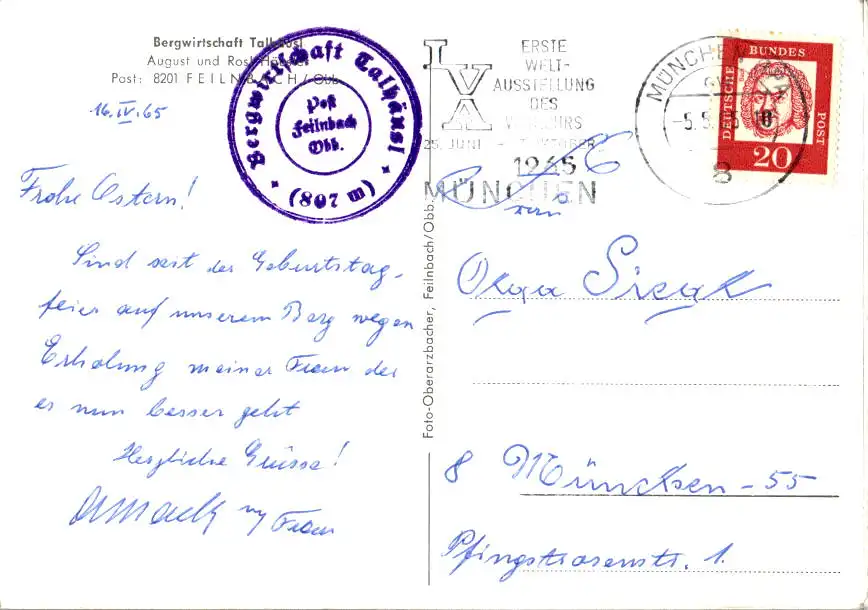 Bergwirtschaft Talhäusl
August und Rosl
Post: 8201 FEILNBACH/Obb.
16.IV.65
Bergwirtschaft Talhäusl
Post
Feilnbach
Obb.
(807 m)
IVA
ERSTE
WELT-
AUSSTELLUNG
DES
VERKEHRS
25. JUNI - OKTOBER
1965
MÜNCHEN
MÜNCHEN
-5.5. 65
8
DEUTSCHE BUNDES POST
20
Frohe Ostern!
Sind seit der Geburtstag-
feier auf unserem Berg wegen
Erholung meiner Frau der
es nun besser geht
Herzliche Grüsse!
Frau
Foto-Oberarzbacher, Feilnbach/Obb.
Frau
Olga
8 München-55
Pfingstrosenstr. 1.